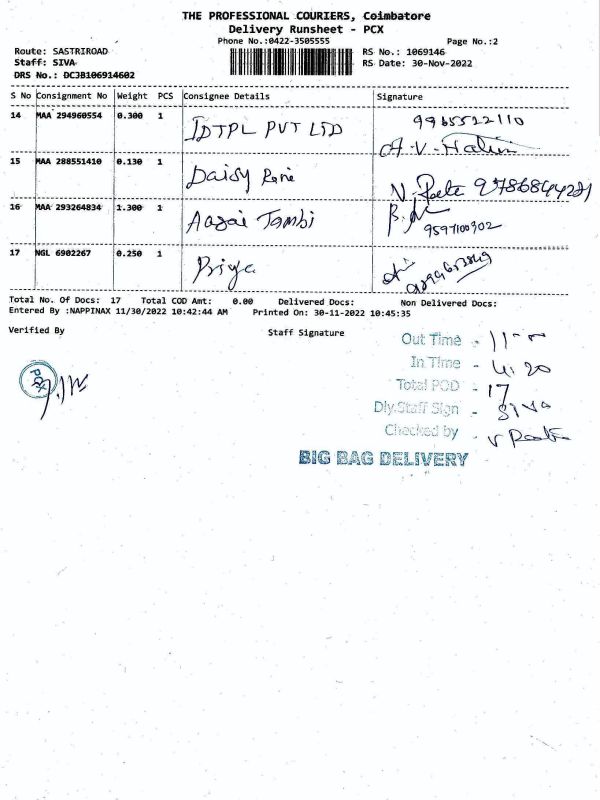 THE PROFESSIONAL COURIERS, Coimbatore
Delivery Runsheet - PCX
Phone No.:0422-3505555 Page No.:2
Route: SASTRIROAD RS No.: 1069146
Staff: SIVA RS Date: 30-Nov-2022
DRS No.: DCJB106914602
S No Consignment No Weight PCS Consignee Details Signature
14 MAA 294960554 0.300 1 IDTPL PVT LTD 9965522110
A.V.
15 MAA 288551410 0.130 1 Daisy Rani
16 MAA 293264834 1.300 1 Aasai Tambi 9597100902
17 NGL 6902267 0.250 1 Priya
Total No. Of Docs: 17 Total COD Amt: 0.00 Delivered Docs: Non Delivered Docs:
Entered By :NAPPINAX 11/30/2022 10:42:44 AM Printed On: 30-11-2022 10:45:35
Verified By Staff Signature
Out Time - 11-00
In Time - 4.20
Total POD - 17
Dly.Staff Sign - SIVA
Checked by -
PCX
BIG BAG DELIVERY